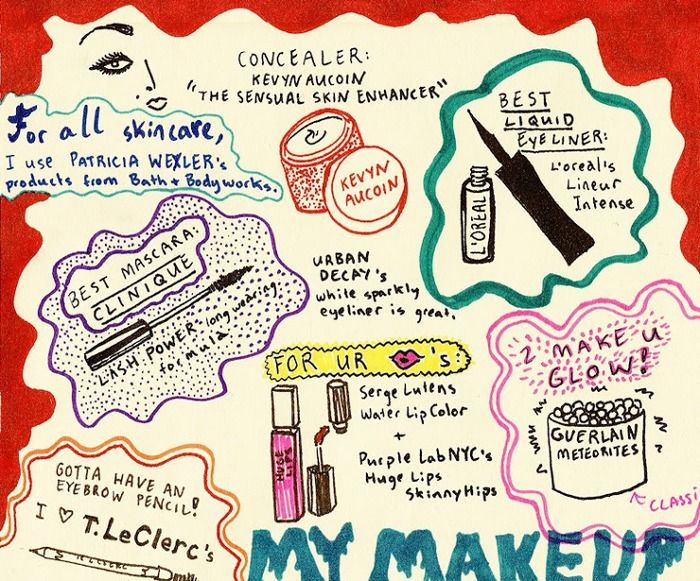 CONCEALER:
KEVYN AUCOIN
"THE SENSUAL SKIN ENHANCER"
KEVYN
AUCOIN
For all skincare,
I use PATRICIA WEXLER's
products from Bath + Bodyworks.
BEST
LIQUID
EYELINER:
L'oreal's
Lineur
Intense
L'OREAL
BEST MASCARA:
CLINIQUE
LASH POWER long wearing
formula
URBAN
DECAY's
white sparkly
eyeliner is great.
FOR UR 's
Serge Lutens
Water Lip Color
+
Purple Lab NYC's
Huge Lips
Skinny Hips
HUGE
LIPS
2 MAKE U
GLOW!
GUERLAIN
METEORITES
CLASSI
GOTTA HAVE AN
EYEBROW PENCIL!
I ♡ T.LeClerc's
MY MAKEUP